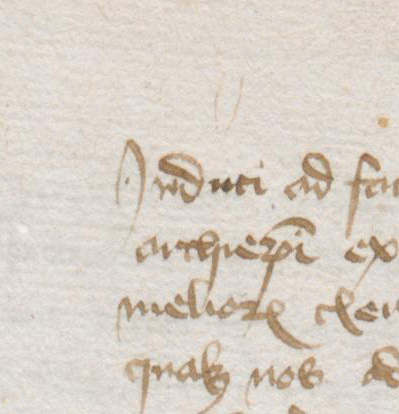 Induci ad fac
archiep̄i ex
meliorꝝ
qualꝫ nos ad